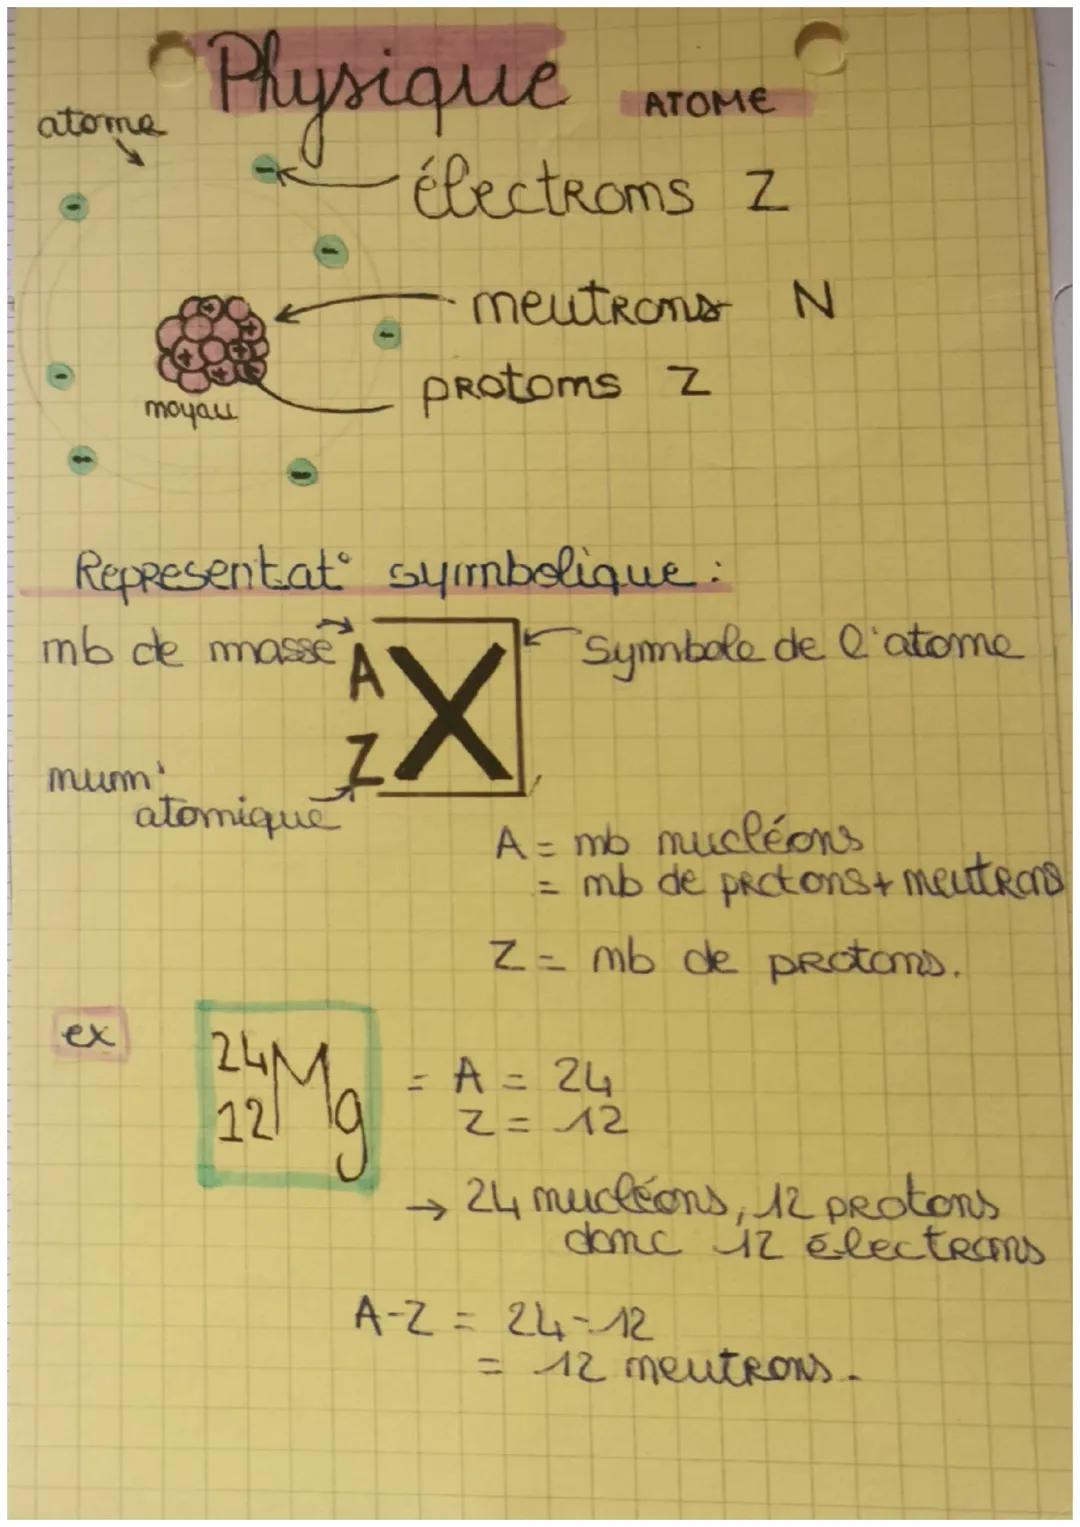 Physique
ATOME
atome
électrons Z
neutrons N
protons Z
noyau
Representat° symbolique :
nb de masse
A
X
Symbole de l'atome
Z
num' atomique
A = nb nucléons
= nb de protons + neutrons
Z = nb de protons.
ex
24
12
Mg
= A = 24
Z = 12
→ 24 nucléons, 12 protons
donc 12 électrons
A-Z = 24-12
= 12 neutrons.